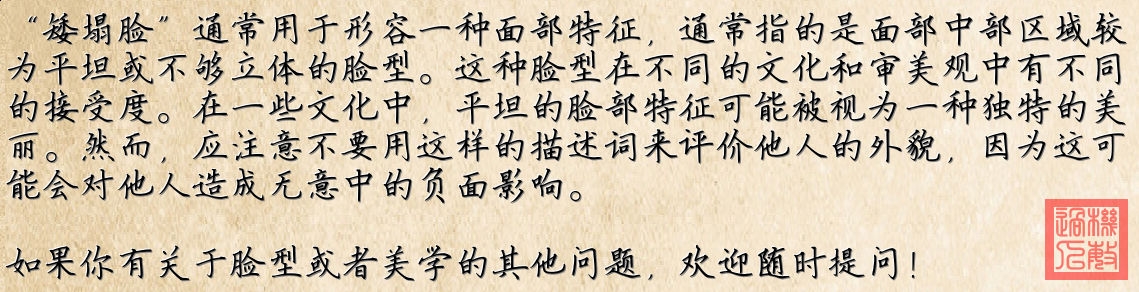 “矮塌脸”通常用于形容一种面部特征，通常指的是面部中部区域较
为平坦或不够立体的脸型。这种脸型在不同的文化和审美观中有不同
的接受度。在一些文化中，平坦的脸部特征可能被视为一种独特的美
丽。然而，应注意不要用这样的描述词来评价他人的外貌，因为这可
能会对他人造成无意中的负面影响。
如果你有关于脸型或者美学的其他问题，欢迎随时提问！